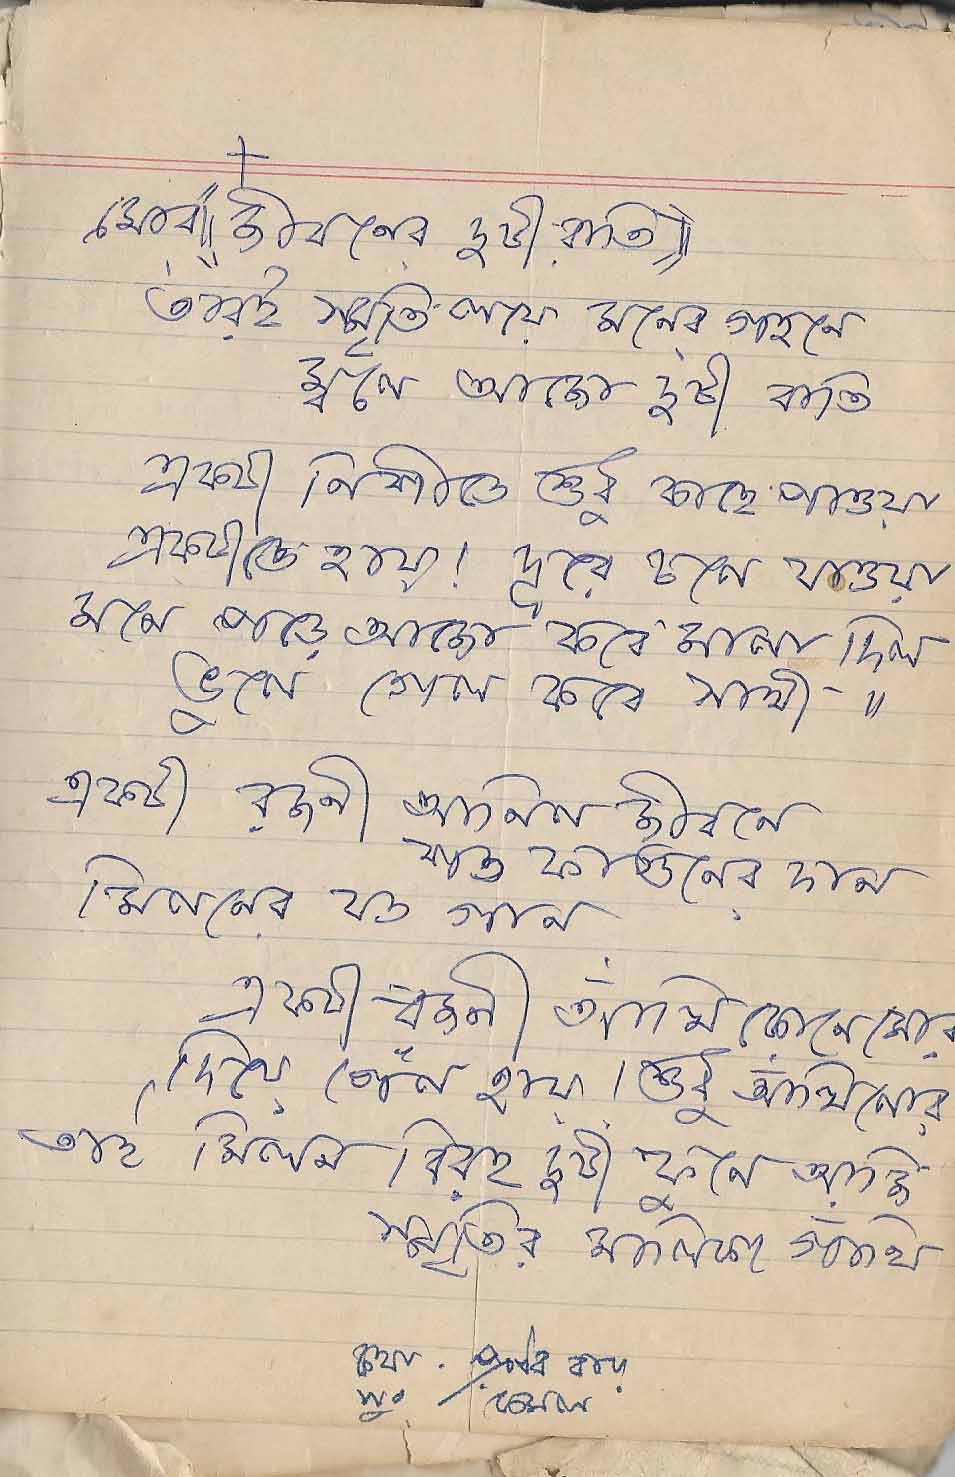 মোর ॥ জীবনের দুটী রাতি ॥
তারই স্মৃতি লয়ে মনের গহনে
জ্বলে আজো দুটী বাতি
একটী নিশীতে শুধু কাছে পাওয়া
একটীতে হায়! দূরে চলে যাওয়া
মনে পড়ে আজো কবে মালা দিল
ভুলে গেল কবে সাথী - ॥
একটী রজনী আনিল জীবনে
শত ফাগুনের দান
মিলনের যত গান
একটী রজনী আঁখি কোনে মোর
দিয়ে গেল হায়! শুধু আঁখিলোর
তাই মিলন বিরহ দুটী ফুলে আজি
স্মৃতির মালিকা গাঁথি
কথা . প্রণব রায়
সুঃ কমল